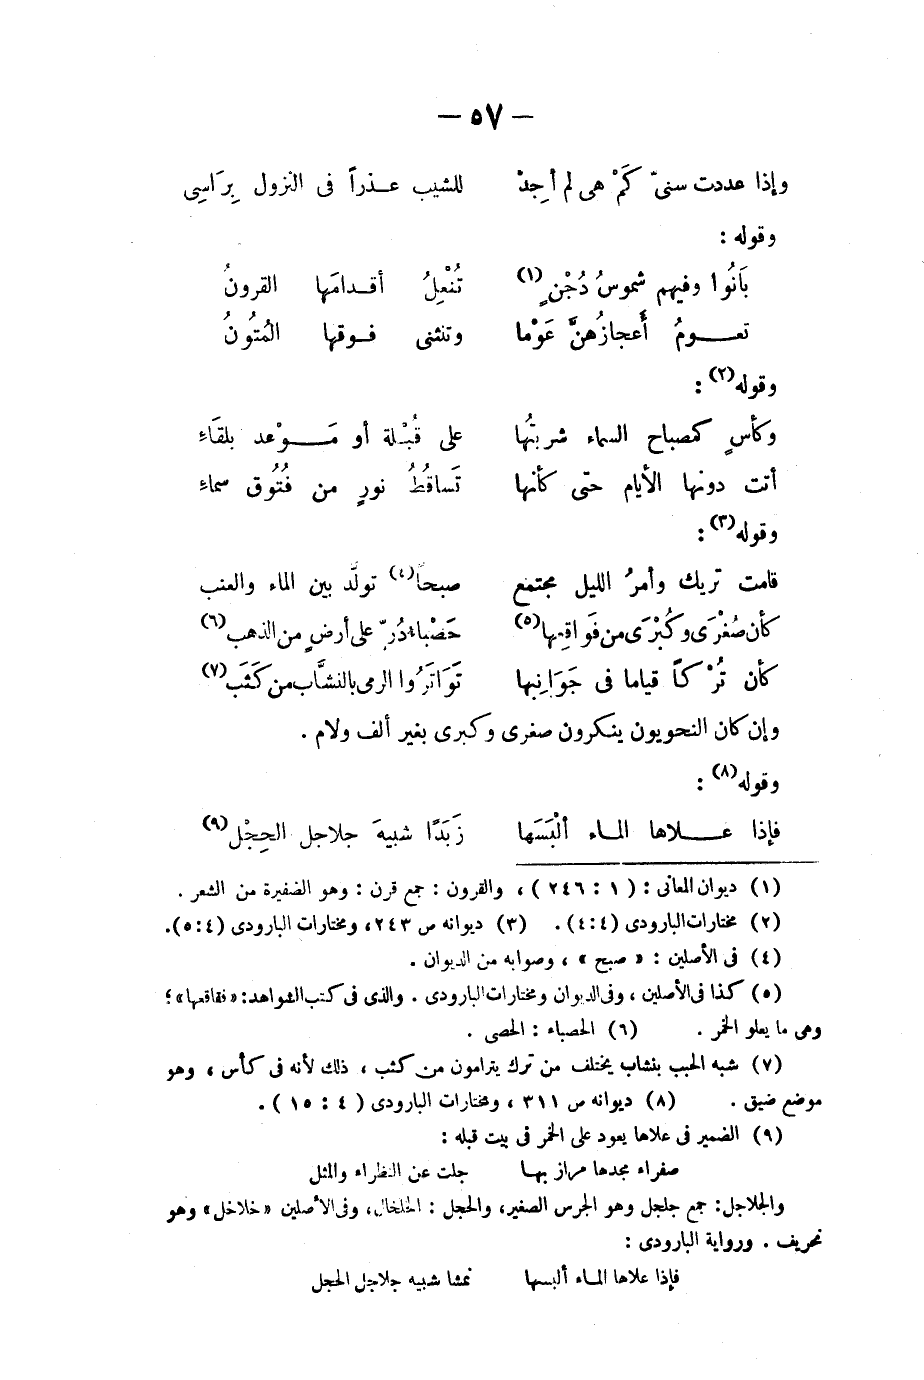 — ٥٧ —
وإذا عددت سنىّ كَمْ هى لم أجِدْ للشيب عــذراً فى النزول بِرَاسِى
وقوله :
بَانُوا وفيهم شموسُ دُجْنٍ (١) تُنْعِلُ أقــدامَها القرونُ
تعـــومُ أَعجازُهنَّ عَوْما وتنثنى فــوقها المُتُونُ
وقوله (٢) :
وكأسٍ كمصباح السماء شربتُها على قُبْلة أو مَــوْعد بلقَاءِ
أتت دونها الأيام حتى كأنها تَساقُطُ نورٍ من فُتُوق سماءِ
وقوله (٣) :
قامت تريك وأمرُ الليل مجتمع صبحاً (٤) تولّد بين الماء والعنب
كأن صُغْرَى وكُبْرَى من فَوَاقِعِها (٥) حَصْباءُ دُرّ على أرضٍ من الذهب (٦)
كأن تُرْكاً قياما فى جَوَانِبها تَوَاتَرُوا الرمى بالنشَّاب من كَثَب (٧)
وإن كان النحويون ينكرون صغرى وكبرى بغير ألف ولام .
وقوله (٨) :
فإذا عــلاها المـاء ألْبَسَها زَبَدًا شبيهَ جلاجل الحِجْل (٩)
(١) ديوان المعانى : (١ : ٢٤٦) ، والقرون : جمع قرن : وهو الضفيرة من الشعر .
(٢) مختارات البارودى (٤:٤). (٣) ديوانه ص ٢٤٣، ومختارات البارودى (٥:٤).
(٤) فى الأصلين : « صبح » ، وصوابه من الديوان .
(٥) كذا فى الأصلين ، وفى الديوان ومختارات البارودى . والذى فى كتب الشواهد: « فقاقعها » ؛
وهى ما يعلو الخمر . (٦) الحصباء : الحصى .
(٧) شبه الحبب بنشاب يختلف من ترك يترامون من كثب ، ذلك لأنه فى كأس ، وهو
موضع ضيق . (٨) ديوانه ص ٣١١ ، ومختارات البارودى (٤ : ١٥) .
(٩) الضمير فى علاها يعود على الخمر فى بيت قبله :
صفراء مجدها مرازبهـا جلت عن النظراء والمثل
والجلاجل: جمع جلجل وهو الجرس الصغير، والحجل : الخلخال، وفى الأصلين « خلاخل » وهو
تحريف . ورواية البارودى :
فإذا علاها المـاء ألبسها نمشا شبيه جلاجل الحجل